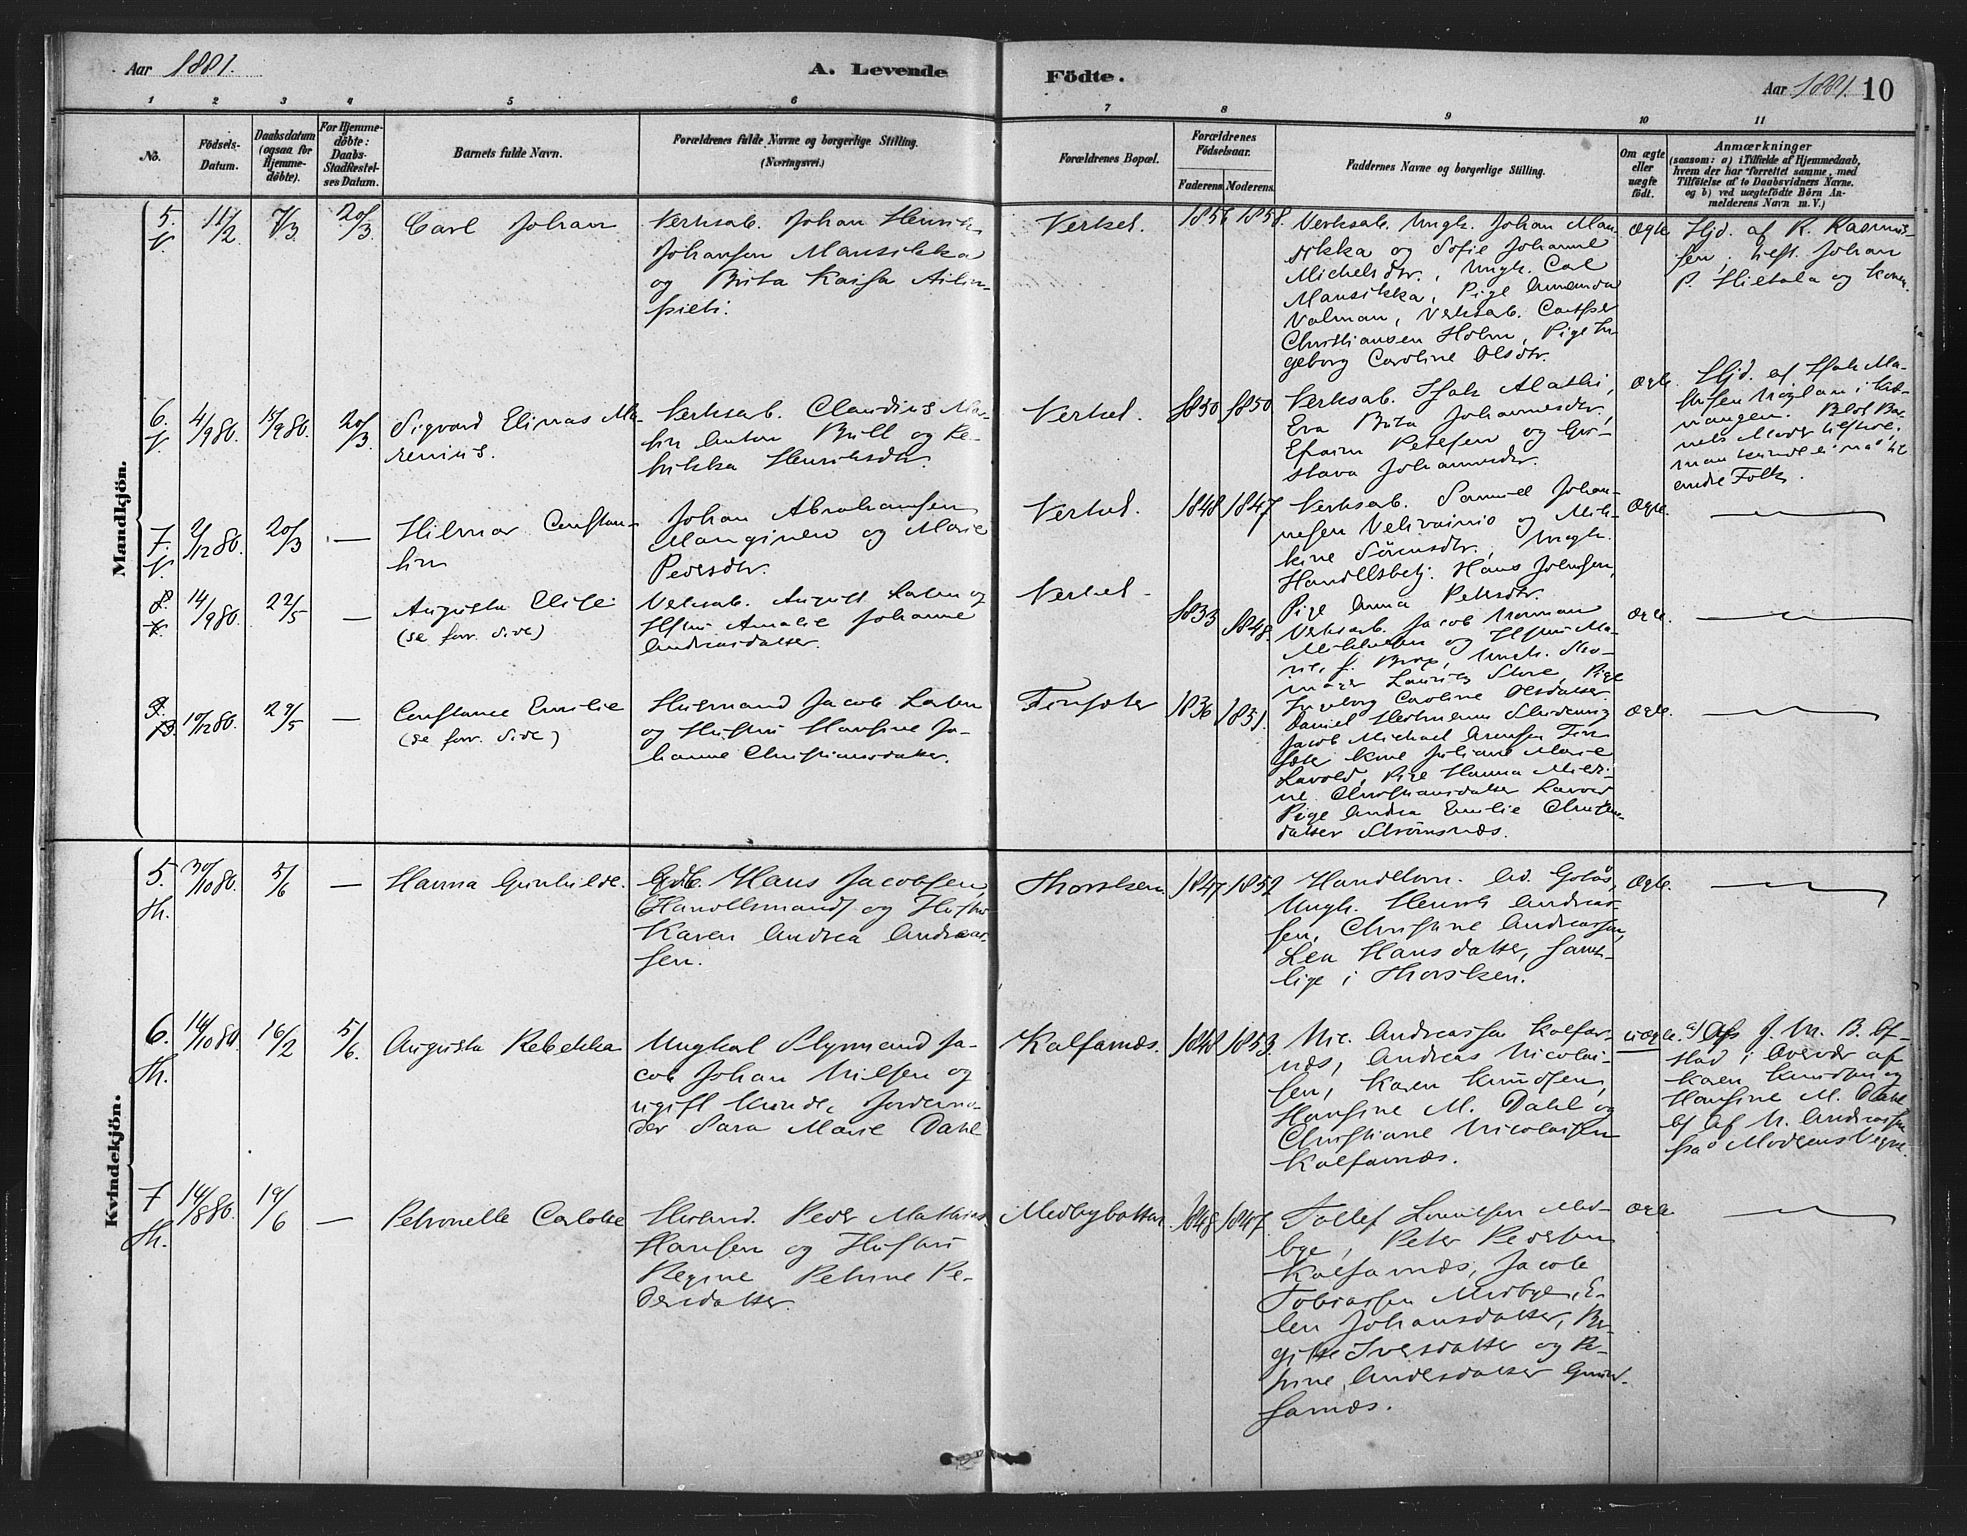 Aar 1881.
A. Levende Födte.
Aar 1881. 10
1 2 3 4 5 6 7 8 9 10 11
No.
Födsels-
Datum.
Daabsdatum
(ogsaa for
Hjemme-
döbte).
For Hjemme-
döbte:
Daabs-
Stadfæstel-
ses Datum.
Barnets fulde Navn.
Forældrenes fulde Navne og borgerlige Stilling.
(Næringsvei.)
Forældrenes Bopæl.
Forældrenes
Födselsaar.
Faderens. Moderens.
Faddernes Navne og borgerlige Stilling.
Om ægte
eller
uægte
födt.
Anmærkninger
(saasom: a) i Tilfælde af Hjemmedaab,
hvem der har forrettet samme, med
Tilföielse af to Daabsvidners Navne,
og b) ved uægtefödte Börn An-
melderens Navn m. V.)
Mandkjön.
5. 11/2 7/3 20/3. Carl Johan
Verksab. Johan Henrik
Johansen Mansikka
og Brita Kaisa
Verket. 1856 1858.
Verksab. Ungk. Johan Man-
sikka og Sofie Johanne
Michelsdtr., Ungk. Carl
Mansikka, Pige Amanda
Valman, Verksab.
Christiansen Holm, Pige In-
geborg Caroline Olsdtr.
Ægte
Hjd. af R. Rasmus-
sen, Johan
P. Hietala og Kone.
6. 4/9 80. 15/9 80. 20/3 Sigvard Elinas Ma-
renius.
Verksab. Claudius Mar-
tin Anton Bull og Re-
bikka Henriksdtr.
Verket. 1850 1850
Verksab. Isak Mathi,
Eva Brita Johannesdtr.,
Efraim Petersen og Gu-
stava Johannesdtr.
Ægte.
Hjd. af Isak Ma-
thisen i Kvæ-
nangen. Blot Bar-
nets Moder tilstede,
man kunde ei naa til
andre Folk.
7. 2/12 80. 20/3 — Hilmar Constan-
tin
Johan Abrahamsen
Manginen og Marie
Pedersdtr.
Verket. 1848 1847
Verksab. Samuel Johan-
nesen Velivainio og
Sörensdtr., Ungk.
Handelsbetj. Hans Jensen,
Pige Anna Petersdtr.
Ægte. —
8. 14/9 80. 22/5 — Augusta Elise
(se forr. Side)
Verksab. August Laken og
Hstru Amalie Johanne
Andreasdatter.
Verket. 1833 1848.
Verksab. Jacob Norman
og Hstru Ma-
rie, f. Brox, Ungk.
Laurits Skive, Pige
Ingeborg Caroline Olsdatter.
Ægte. —
9. 10/12 80. 29/5 — Constance Emilie
(se forr. Side)
Husmand Jacob Laken
og Hustru Hansine Jo-
hanne Christiansdatter.
Finsæter 1836 1851.
Daniel
Jacob Michael Arensen Fin-
sæter, Kone Juliane Marie
Lavold, Pige Hanna
Christiansdatter Lavold
Pige Andrea Emilie
datter Strömsnæs.
Ægte. —
Kvindekjön.
5. Th. 30/10 80. 5/6 — Hanna Gunhilde.
Gdb. Hans Jacobsen,
Handelsmand og Hustru
Karen Andrea Andreas-
sen.
Thorsken. 1847 1852
Handelsm. Ad. Golas,
Ungk. Henrik Andreas-
sen, Christine Andreassen,
Lea Hansdatter, samt-
lige i Thorsken.
Ægte. —
6. Th. 14/10 80 16/2 5/6. Augusta Rebekka
Ungkal Styrmand Ja-
cob Johan Nilsen og
ugift Kvinde, Jordemo-
der Sara Marie Dahl
Kalfarnæs. 1848 1853.
Nic. Andreassen Kalfar-
næs, Andreas Nicolai-
sen, Karen Knudsen,
Hansine M. Dahl og
Christiane Nicolaisen
Kalfarnæs.
uægte.
a) Af J. M. B. Af-
stad i Overvær af
Karen Knudsen og
Hansine M. Dahl
b) Af N. Andreassen
paa Moderens Vegne.
7 Th. 14/8 80. 19/6 — Petronelle Carlotte
Peder Mathias
Hansen og Hustru
Regine Petrine Pe-
dersdatter.
Medbybotten. 1848. 1847.
Tollef Med-
bye, Peter Pedersen
Kalfarnæs, Jacob
Tobiassen Medbye, E-
len Johansdatter, Bir-
gitte Iversdatter og Pe-
trine Andersdatter
farnæs.
Ægte. —